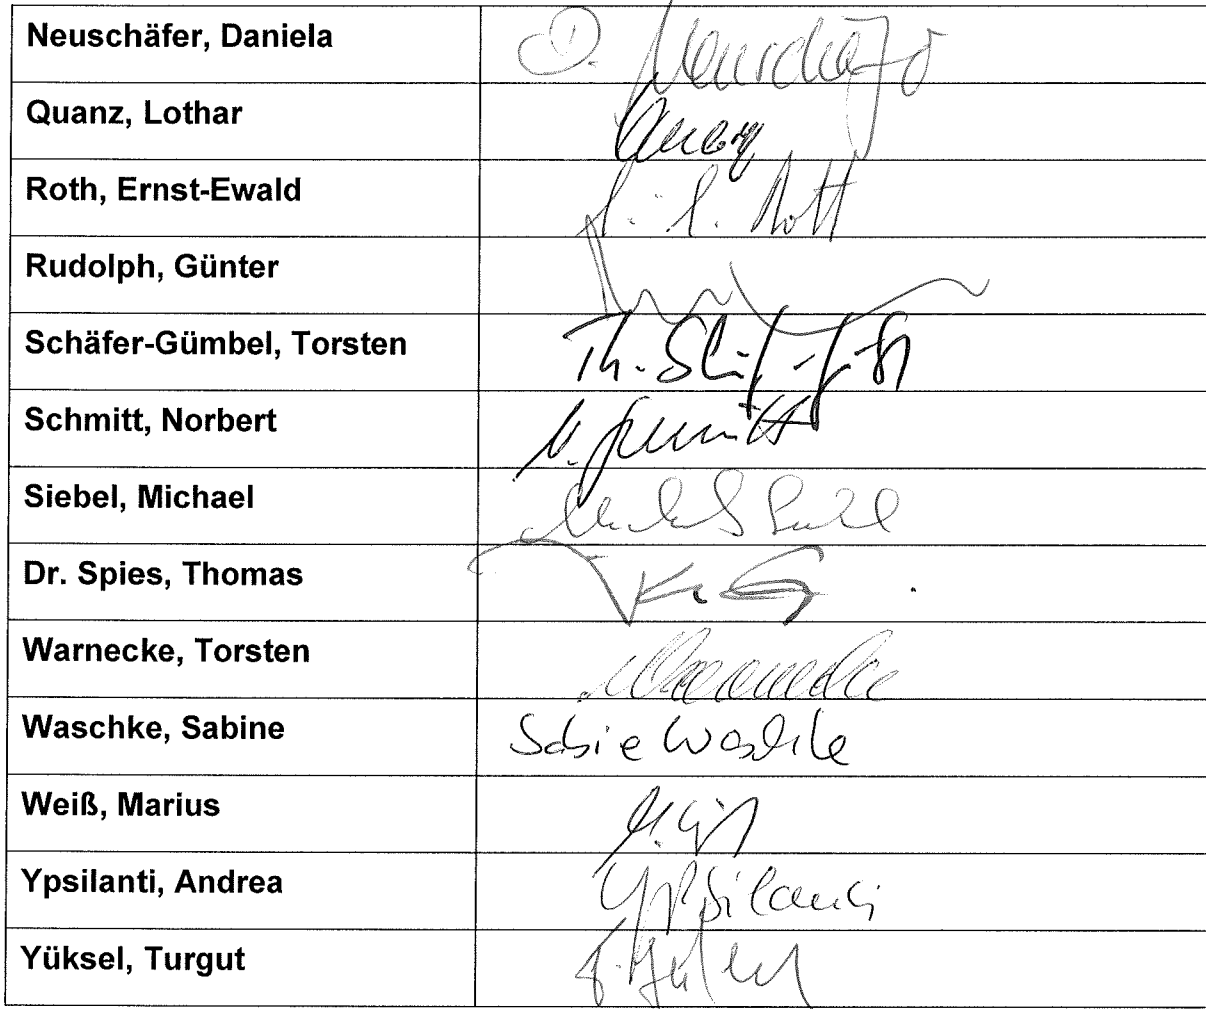 Neuschäfer, Daniela D. Neuschäfer
Quanz, Lothar Quanz
Roth, Ernst-Ewald E.-E. Roth
Rudolph, Günter
Schäfer-Gümbel, Torsten Th. Schäfer-Gümbel
Schmitt, Norbert N. Schmitt
Siebel, Michael Michael Siebel
Dr. Spies, Thomas
Warnecke, Torsten Warnecke
Waschke, Sabine Sabine Waschke
Weiß, Marius
Ypsilanti, Andrea Ypsilanti
Yüksel, Turgut T. Yüksel